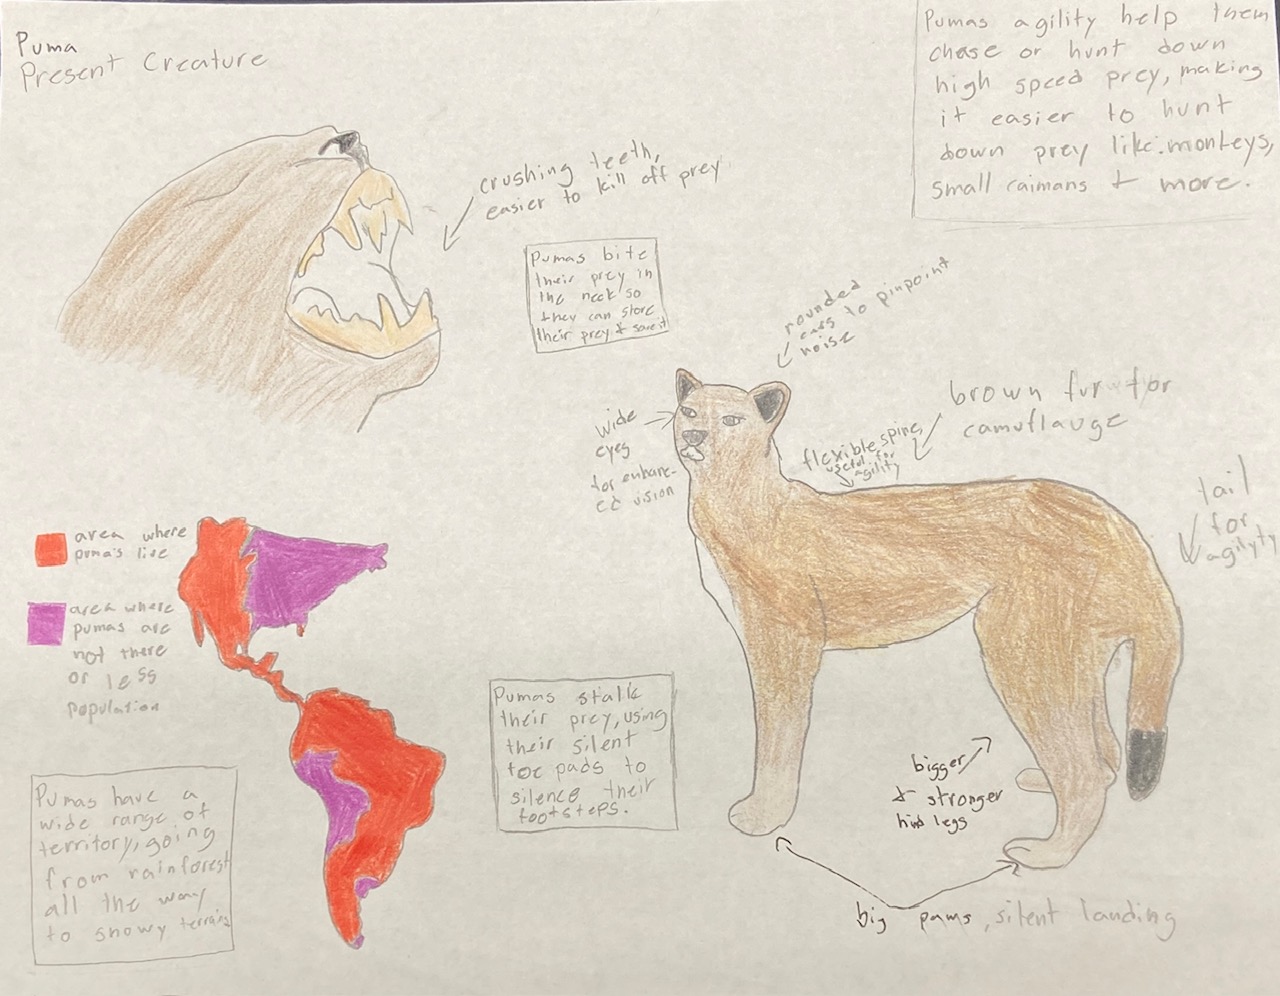 Puma
Present Creature
Pumas agility help them
chase or hunt down
high speed prey, making
it easier to hunt
down prey like: monkeys,
small caimans & more.
crushing teeth,
easier to kill off prey
Pumas bite
their prey in
the neck so
they can store
their prey & save it
rounded
ears to pinpoint
noise
wide
eyes
for enhanc-
ed vision
flexible spine,
useful for
agility
brown fur for
camuflauge
tail
for
agilyty
area where
puma's live
area where
pumas are
not there
or less
population
Pumas stalk
their prey, using
their silent
toe pads to
silence their
footsteps.
bigger
& stronger
hind legs
Pumas have a
wide range of
territory, going
from rainforest
all the way
to snowy terrains
big paws, silent landing